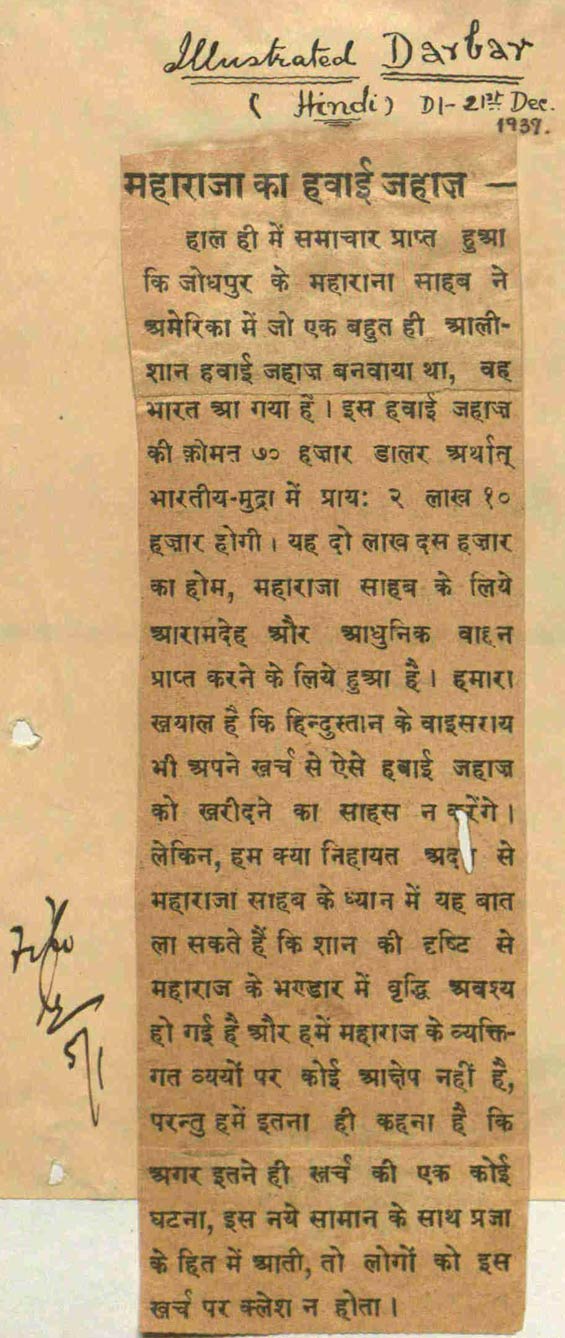 Illustrated Darbar
(Hindi) Dt- 21st Dec.
1937.
महाराजा का हवाई जहाज़ —
हाल ही में समाचार प्राप्त हुआ
कि जोधपुर के महाराना साहब ने
अमेरिका में जो एक बहुत ही आली-
शान हवाई जहाज़ बनवाया था, वह
भारत आ गया है । इस हवाई जहाज़
की क़ीमत ७० हज़ार डालर अर्थात्
भारतीय-मुद्रा में प्रायः २ लाख १०
हज़ार होगी । यह दो लाख दस हज़ार
का होम, महाराजा साहब के लिये
आरामदेह और आधुनिक वाहन
प्राप्त करने के लिये हुआ है । हमारा
खयाल है कि हिन्दुस्तान के वाइसराय
भी अपने खर्च से ऐसे हवाई जहाज़
को खरीदने का साहस न करेंगे ।
लेकिन, हम क्या निहायत अदब से
महाराजा साहब के ध्यान में यह बात
ला सकते हैं कि शान की दृष्टि से
महाराज के भण्डार में वृद्धि अवश्य
हो गई है और हमें महाराज के व्यक्ति-
गत व्ययों पर कोई आक्षेप नहीं है,
परन्तु हमें इतना ही कहना है कि
अगर इतने ही खर्च की एक कोई
घटना, इस नये सामान के साथ प्रजा
के हित में आती, तो लोगों को इस
खर्च पर क्लेश न होता ।